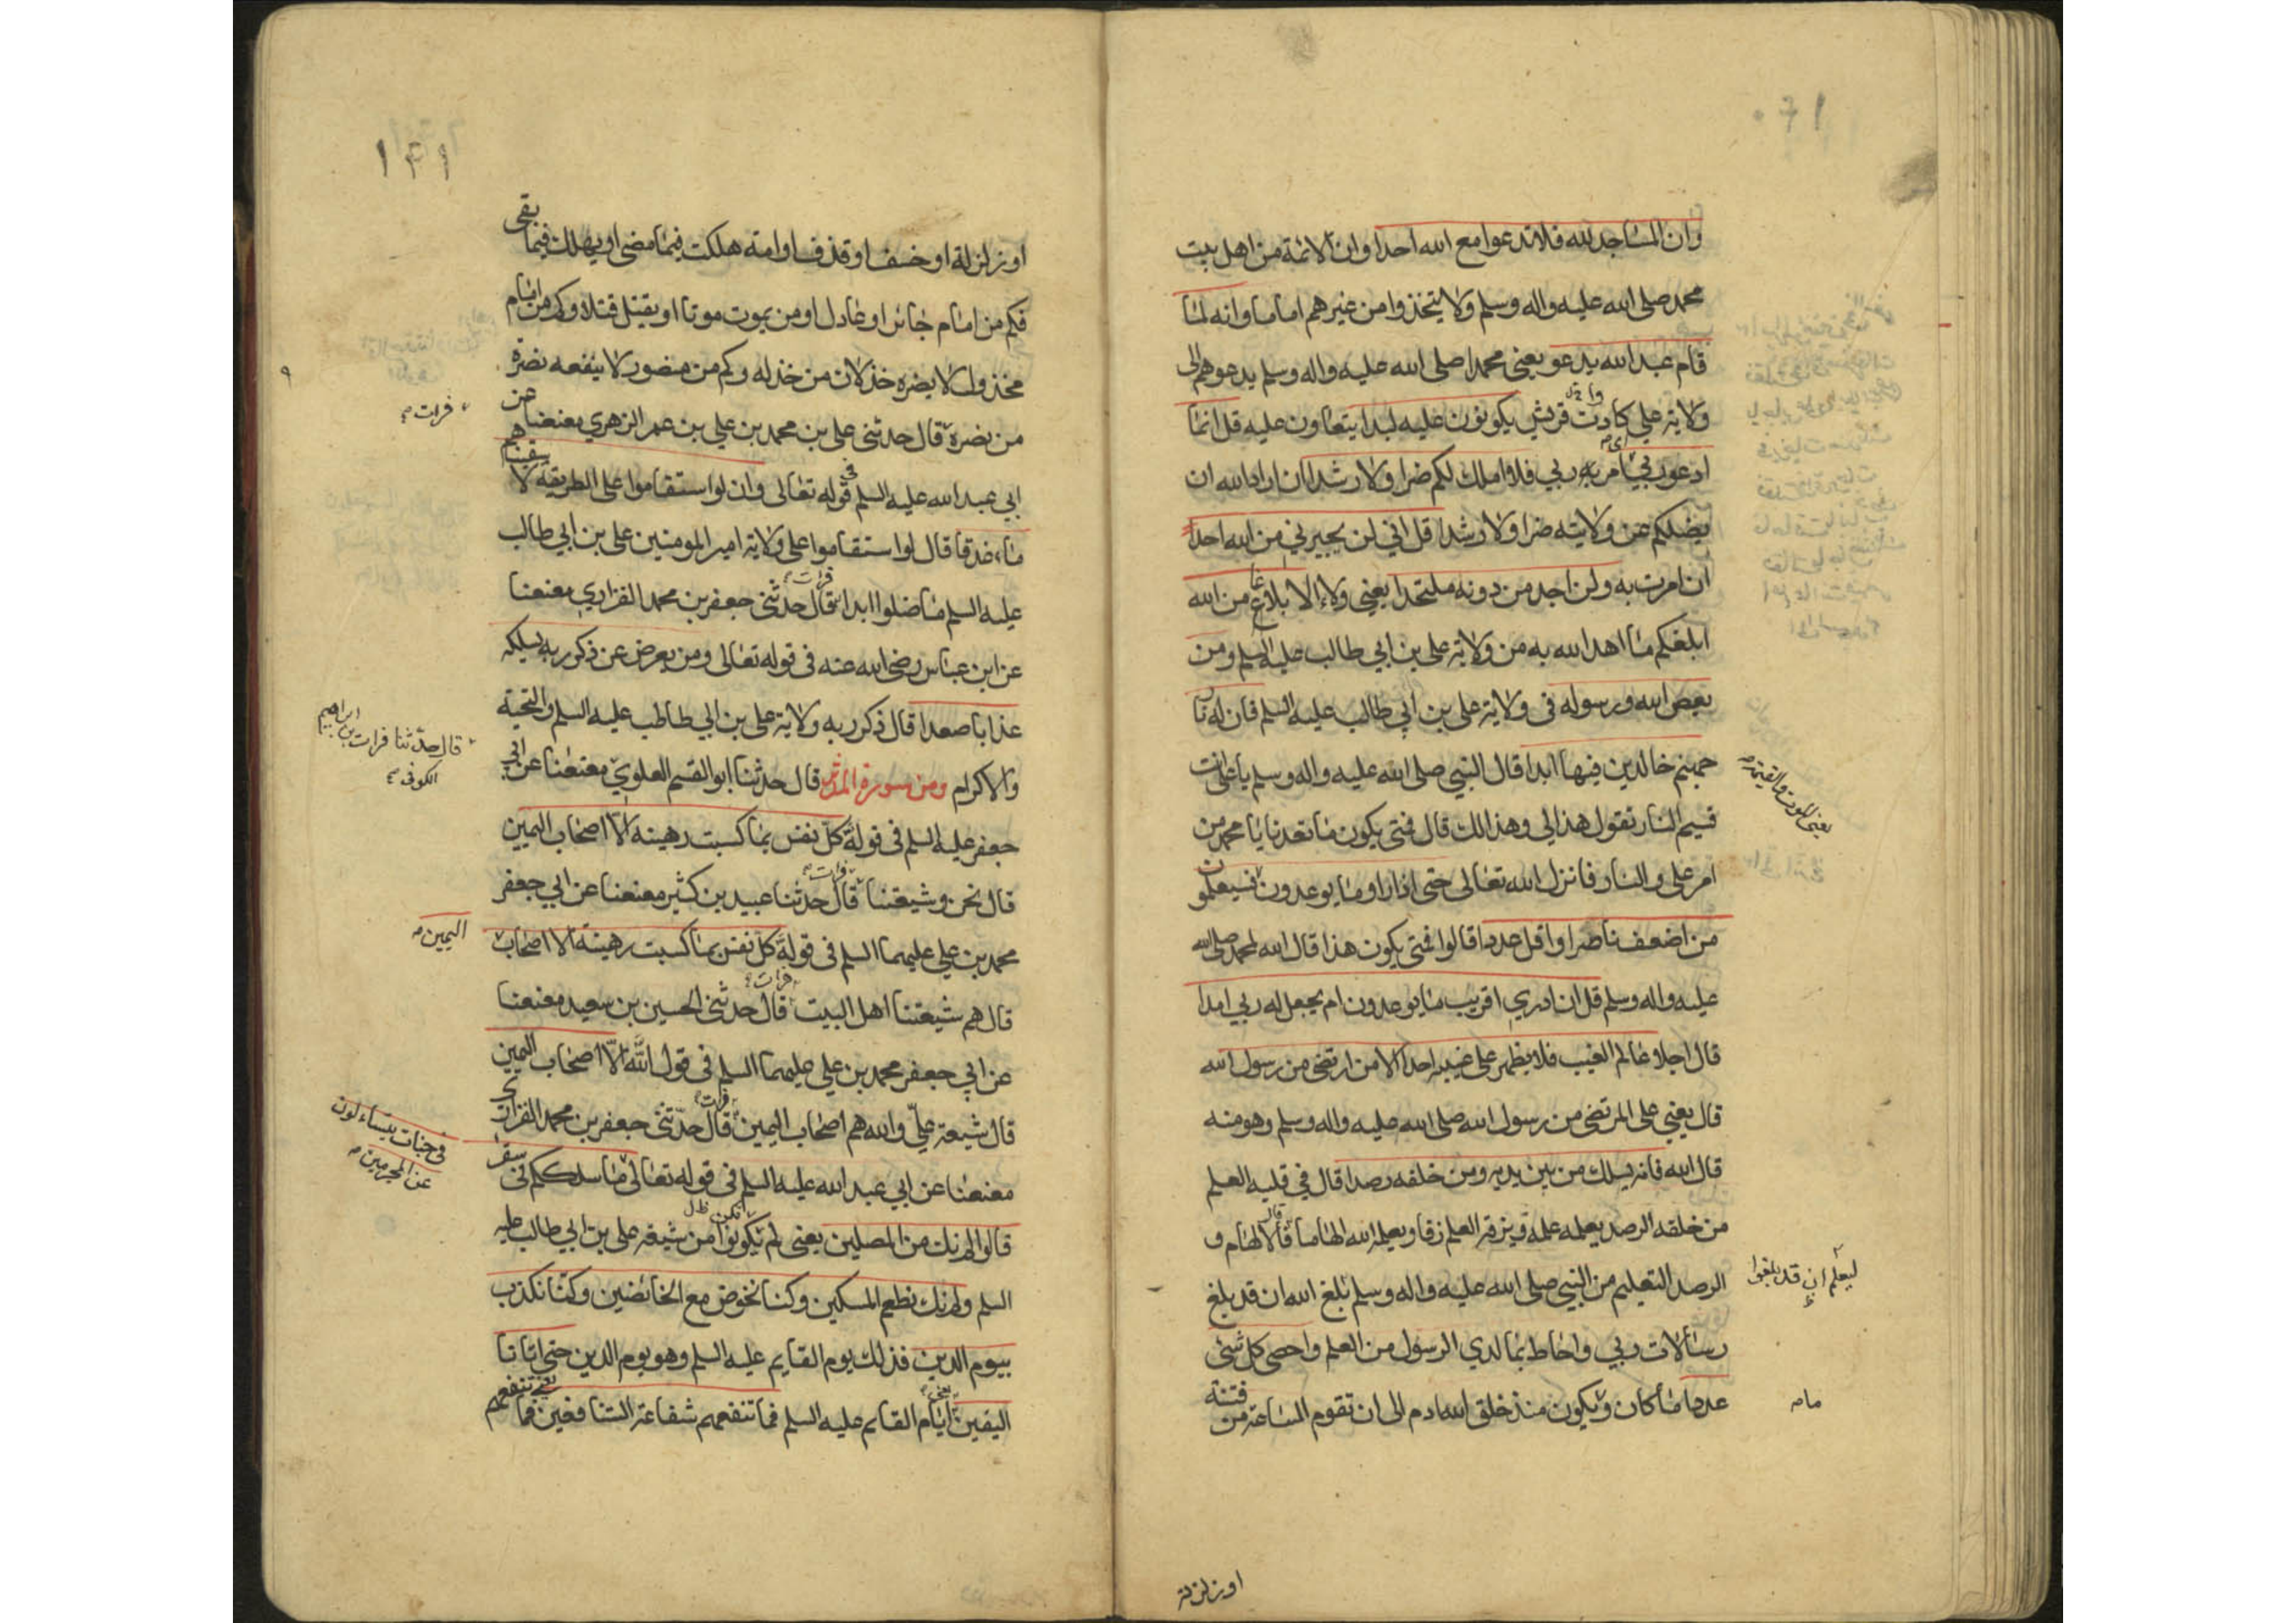 وان المساجد لله فلا تدعوا مع الله احدا وان الائمة من اهل بيت
محمد صلى الله عليه واله وسلم ولا يتخذوا من غيرهم اماما وانه لمٰا
قام عبد الله يدعو يعنى محمدا صلى الله عليه واله وسلم يدعوهم الى
ولاية علي كادت قريش يكونون عليه لبدا يتعاون عليه قل انما
ادعو ربي امر به ربي فلا املك لكم ضرا ولا رشدا ان اراد الله ان
يضلكم عن ولايته ضرا ولا رشدا قل اني لن يجيرني من الله احد
ان امرت به ولن اجد من دونه ملتحدا يعني ولاء الا بلاغا من الله
ابلغكم ما اهد الله به من ولاية على بن ابي طالب عليه السلم ومن
يعص الله ورسوله فى ولاية على بن ابي طالب عليه السلم فان له نار
جهنم خالدين فيها ابدا قال النبي صلى الله عليه واله وسلم يا على انت
يعنى الموت والقيمة
قسيم النار تقول هذا لي وهذا لك قال فمتى يكون ما تعدنا يا محمد من
امر علي والنار فانزل الله تعالى حتى اذا راوا ما يوعدون فسيعلمون
من اضعف ناصرا واقل عددا قالوا فمتى يكون هذا قال الله لمحمد صلى الله
عليه واله وسلم قل ان ادري اقريب ما يوعدون ام يجعل له ربي امدا
قال اجلا عالم الغيب فلا يظهر على غيبه احدا الا من ارتضى من رسول الله
قال يعني على المرتضى من رسول الله صلى الله عليه واله وسلم وهو منه
قال الله فانه يسلك من بين يديه ومن خلفه رصدا قال في قلبه العلم
من خلفه الرصد يعلمه علمه ويزقه العلم زقا ويعلمه الله الهاما قال الالهام و
الرصد التعليم من النبي صلى الله عليه واله وسلم بلغ الله ان قد بلغ
ليعلم ان قد بلغوا
رسالات ربي واحاط بما لدي الرسول من العلم واحصى كل شئ
عددا ما كان ويكون منذ خلق الله ادم الى ان تقوم الساعة من فتنة
ما
او زلزلة
١٤١
او زلزلة او خسف او قذف او امة هلكت فيما مضى او يهلك فيما بقى
فكم من امام جائر او عادل او من يموت موتا او يقتل قتلا وكم من امام
مخذول لا يضره خذلان من خذله وكم من منصور لا ينفعه نصرة
من نصره قال حدثنى على بن محمد بن علي بن عمر الزهري معنعنا عن
فرات
ابي عبد الله عليه السلم في قوله تعالى وان لو استقاموا على الطريقة لاسقيناهم
ماء غدقا قال لو استقاموا على ولاية امير المومنين على بن ابي طالب
عليه السلم ما ضلوا ابدا فرات قال حدثنى جعفر بن محمد الفزاري معنعنا
عن ابن عباس رضى الله عنه فى قوله تعالى ومن يعرض عن ذكر ربه يسلكه
عذابا صعدا قال ذكر ربه ولاية على بن ابي طالب عليه السلم والتحية
والاكرام ومن سورة المدثر قال حدثنا ابو القسم العلوي معنعنا عن ابي
قال حدثنا فرات بن ابراهيم
الكوفى
جعفر عليه السلم فى قوله كل نفس بما كسبت رهينة الا اصحاب اليمين
قال نحن وشيعتنا فرات قال حدثنا عبيد بن كثير معنعنا عن ابي جعفر
محمد بن علي عليهما السلم فى قوله كل نفس بما كسبت رهينة الا اصحاب
اليمين
قال هم شيعتنا اهل البيت فرات قال حدثنى الحسين بن سعيد معنعنا
عن ابي جعفر محمد بن علي عليهما السلم فى قول الله الا اصحاب اليمين
قال شيعة علي والله هم اصحاب اليمين فرات قال حدثنى جعفر بن محمد الفزارى
فى جنات يتساءلون
عن المجرمين
معنعنا عن ابي عبد الله عليه السلم فى قوله تعالى ما سلككم فى سقر
قالوا لم نك من المصلين يعنى لم يكونوا من شيعة على بن ابي طالب عليه
السلم ولم نك نطعم المسكين وكنا نخوض مع الخائضين وكنا نكذب
بيوم الدين فذلك يوم القايم عليه السلم وهو يوم الدين حتى اتانا
اليقين يعنى ايام القايم عليه السلم فما تنفعهم شفاعة الشافعين فما